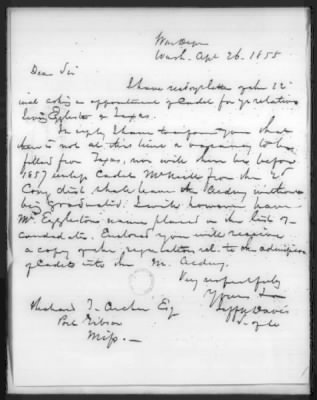 War Dept
Wash. Apl 26. 1855
Dear Sir
I have recd yr letter of the 12th
inst asking an appointment of Cadet for yr relative
Eggleston of Texas.
In reply I have to inform you that
there is not at this time a vacancy to be
filled from Texas, nor will there be before
1857 unless Cadet McNeill from the 2d
Cong. dist. shall leave the Acdmy without
being Graduated. I will however have
Mr Eggleston's name placed on the list of
candidates. Enclosed you will receive
a copy of the regulations rel. to the admission
of Cadets into the M. Acdmy.
Very respectfully
Yours
Jeffn Davis
Richard T. Archer Esq
Port Gibson
Missi.—